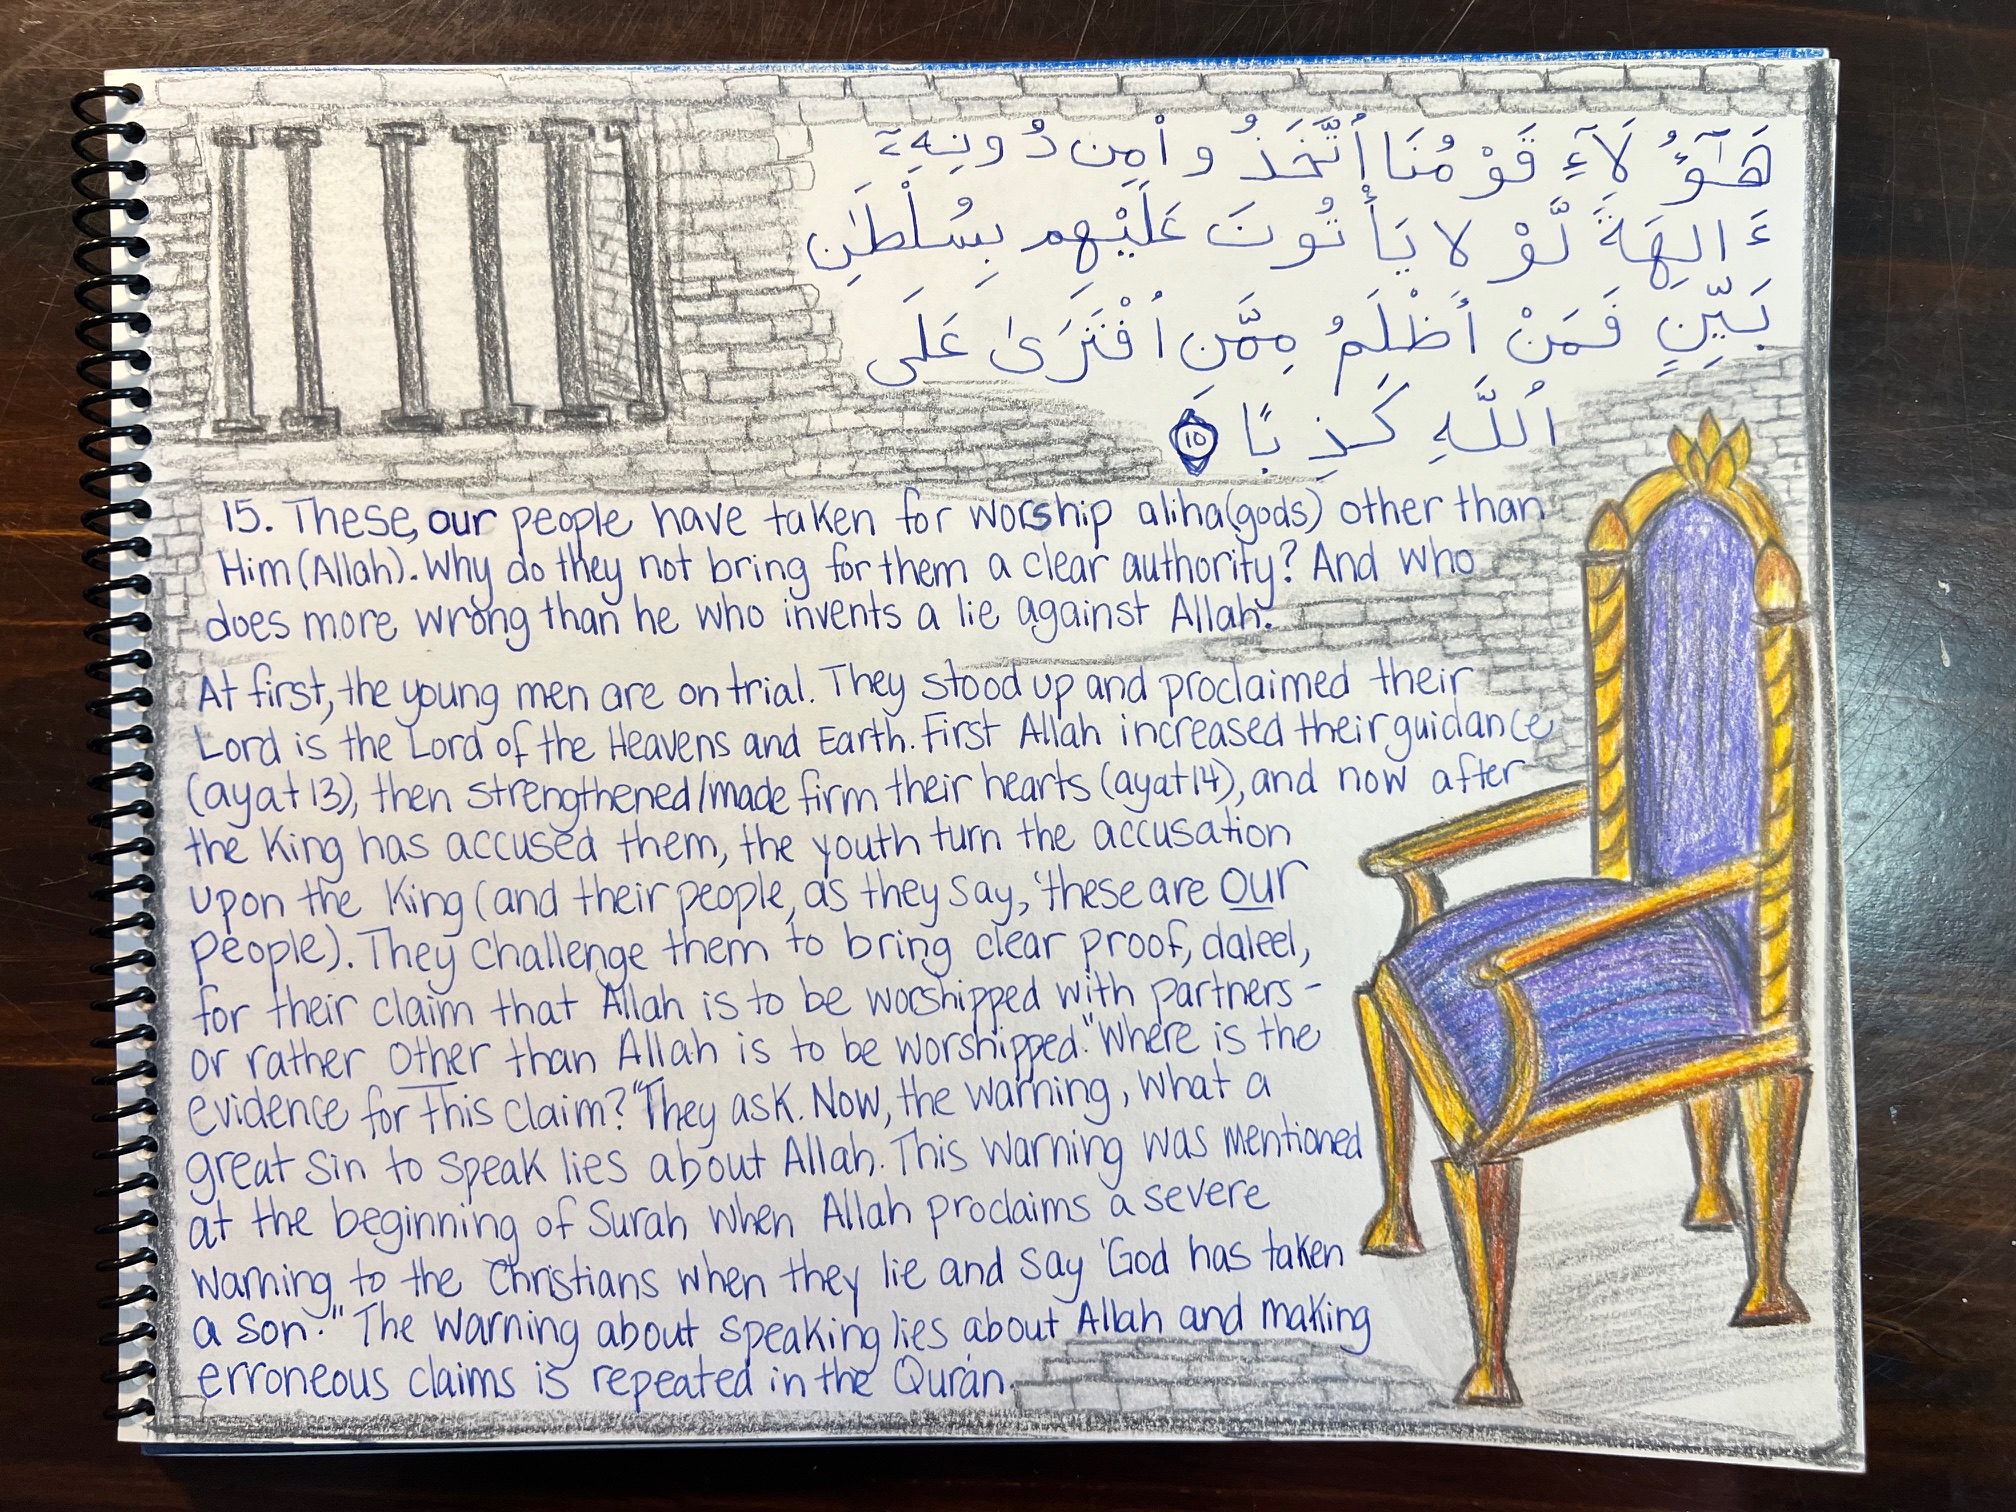 هَـٰٓؤُ لَآءِ قَوْ مُنَا ٱتَّخَذُ وا۟ مِن دُ ونِهِۦٓ
ءَ الِهَةً لَّوْ لا يَأْ تُونَ عَلَيْهِم بِسُلْطَـٰنِ
بَيِّنٍ فَمَنْ أَظْلَمُ مِمَّنِ ٱفْتَرَىٰ عَلَى
ٱللَّهِ كَذِ بًا ١٥
15. These, our people have taken for worship aliha(gods) other than
Him (Allah). Why do they not bring for them a clear authority? And who
does more wrong than he who invents a lie against Allah.
At first, the young men are on trial. They stood up and proclaimed their
Lord is the Lord of the Heavens and Earth. First Allah increased their guidance
(ayat 13), then strengthened/made firm their hearts (ayat 14), and now after
the King has accused them, the youth turn the accusation
upon the King (and their people, as they say, 'these are our
people). They challenge them to bring clear proof, daleel,
for their claim that Allah is to be worshipped with partners -
or rather other than Allah is to be worshipped. "Where is the
evidence for this claim?" They ask. Now, the warning, what a
great sin to speak lies about Allah. This warning was mentioned
at the beginning of Surah when Allah proclaims a severe
warning to the Christians when they lie and say 'God has taken
a son." The warning about speaking lies about Allah and making
erroneous claims is repeated in the Qurán.